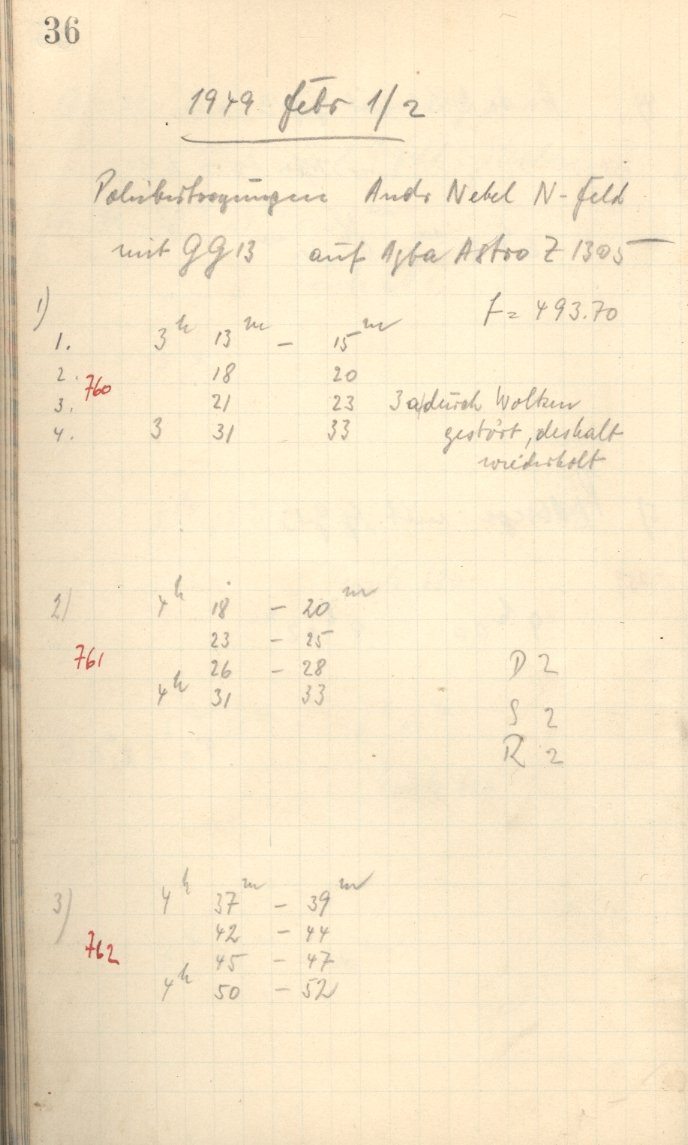 36
1949 Febr 1/2
Polübertragungen Andr Nebel N-Feld
mit GG13 auf Agfa Astro Z 1305
f = 493.70
1)
1. 3h 13m - 15m
2. 18 20
760
3. 21 23 3 durch Wolken
4. 3 31 33 gestört, deshalb
wiederholt
2) 4h 18 - 20m
23 - 25
761
26 - 28 D 2
4h 31 33
S 2
R 2
3) 4h 37m - 39m
42 - 44
762
45 - 47
4h 50 - 52